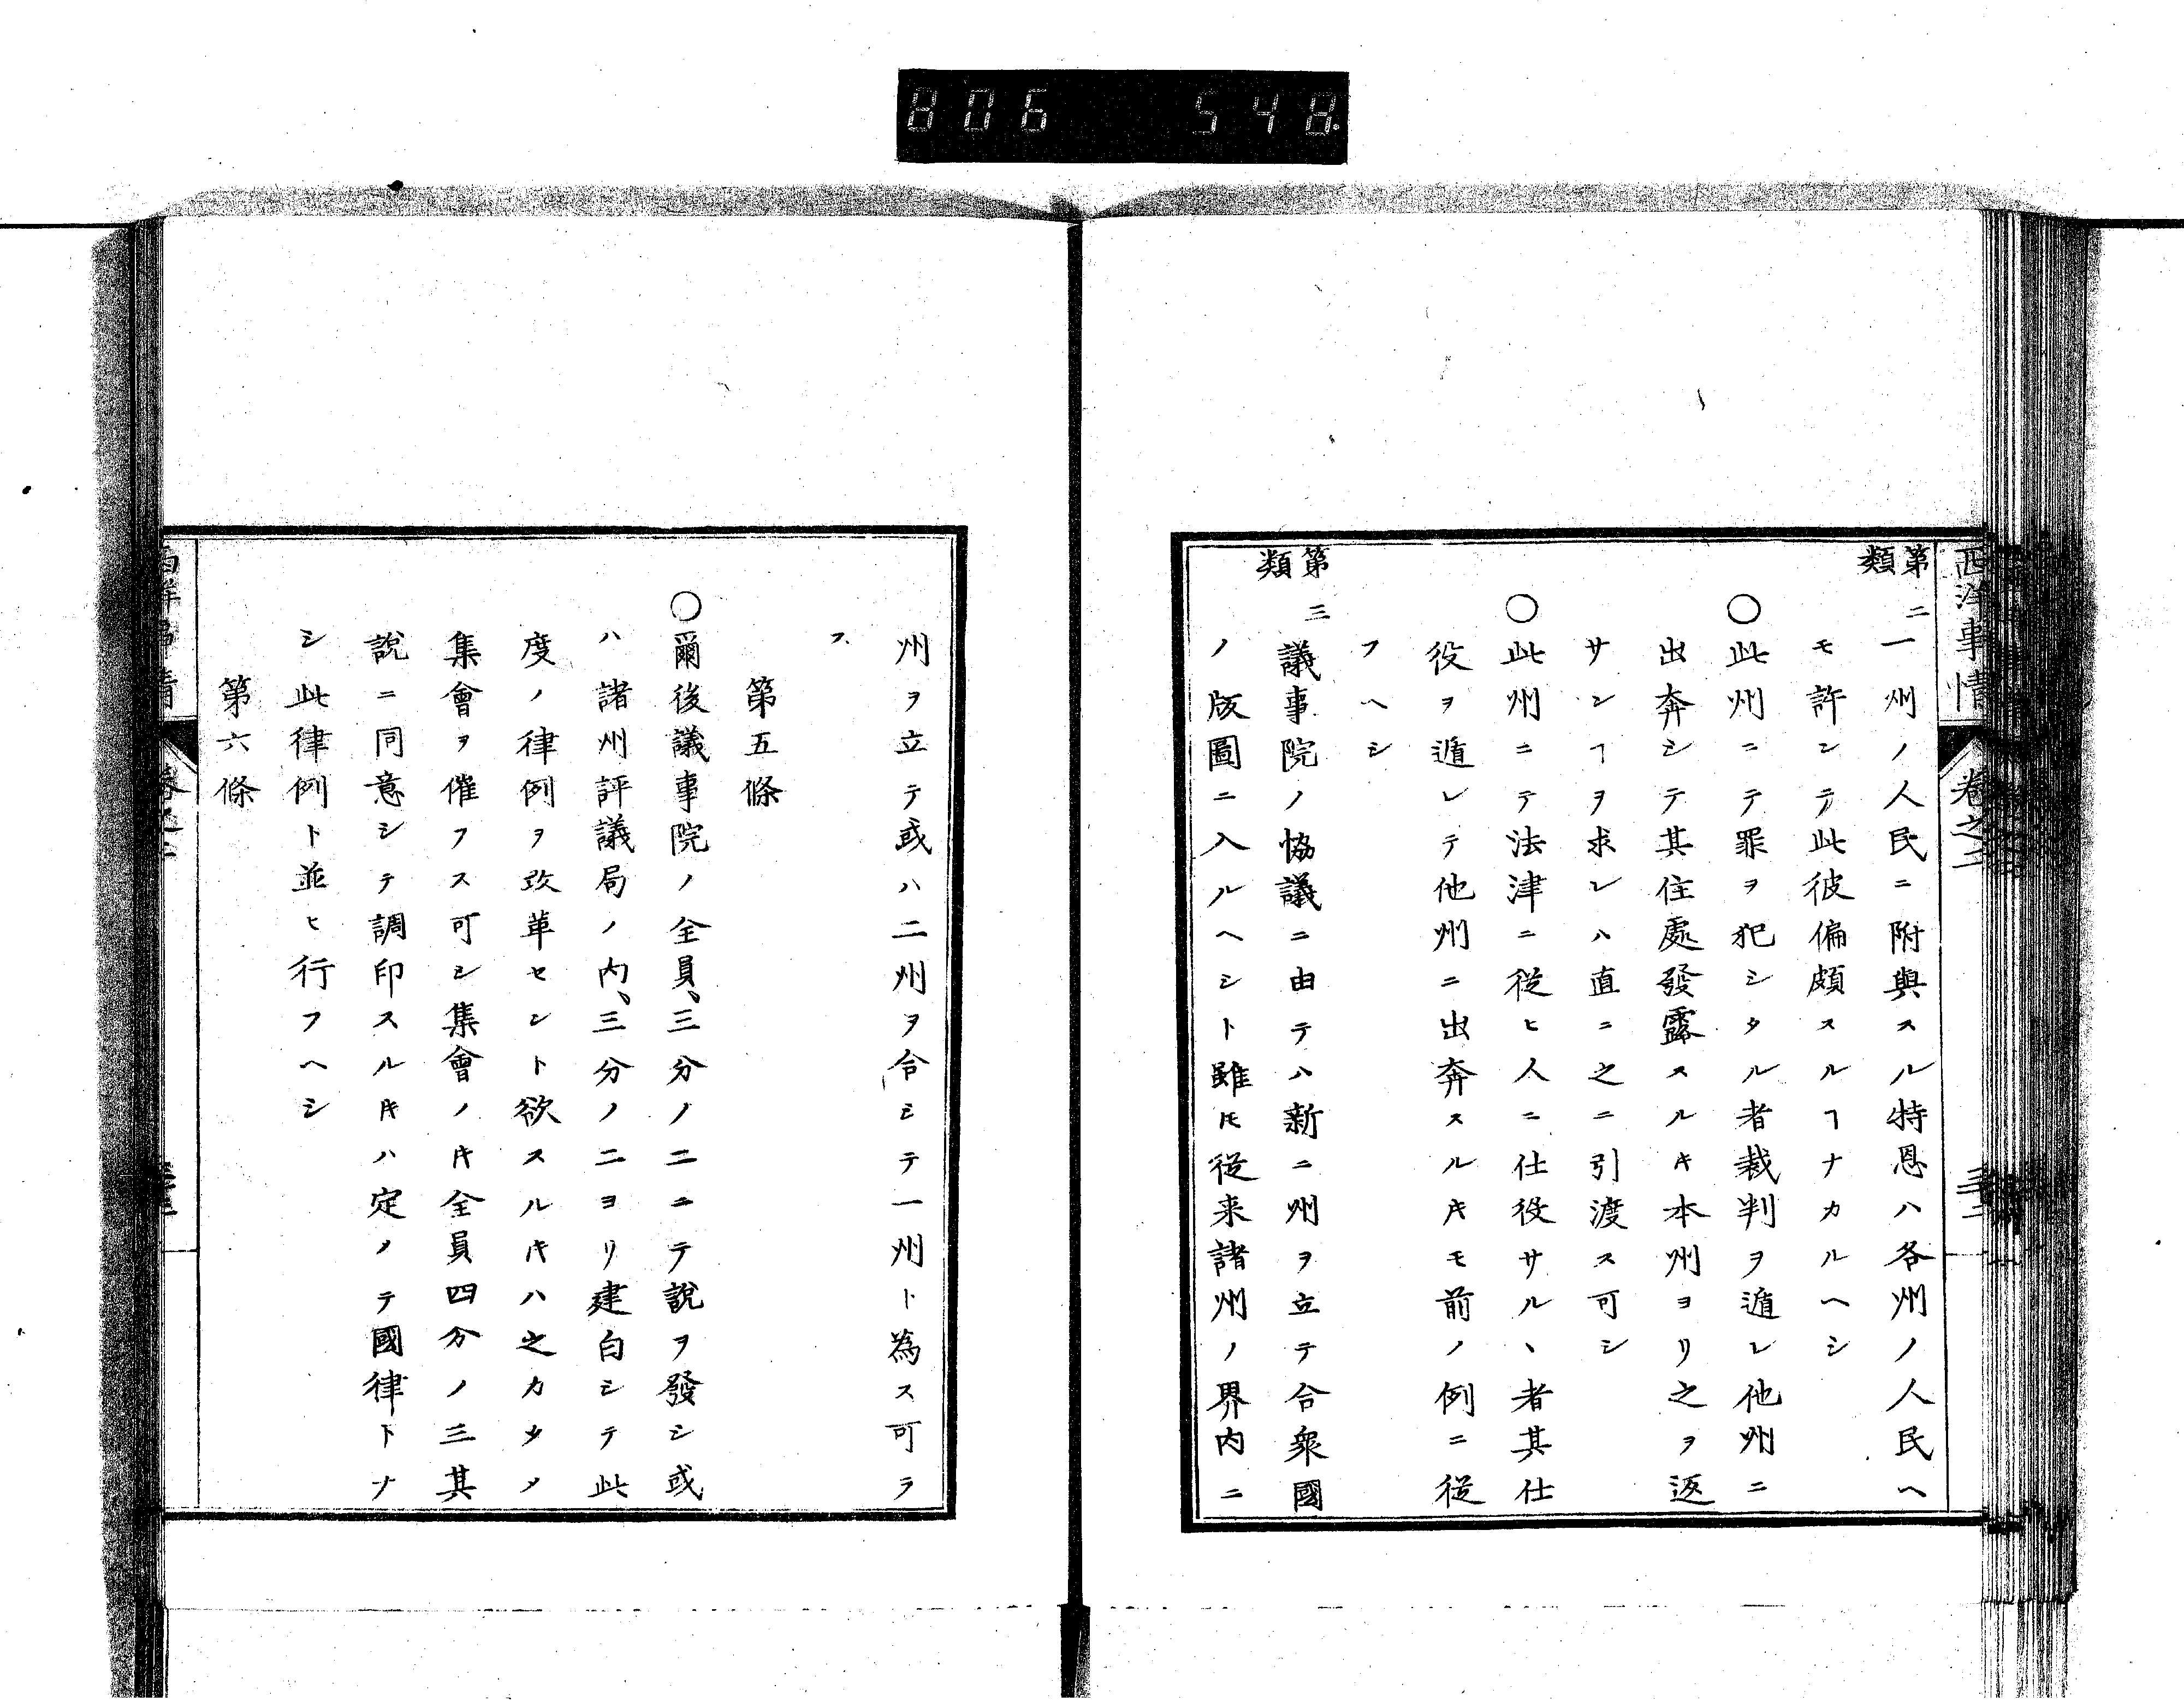 806 548.
西洋事情
巻之二
第二類
一州ノ人民ニ附與スル特恩ハ各州ノ人民ヘ
モ許シテ此彼偏頗スルヿナカルヘシ
〇此州ニテ罪ヲ犯シタル者裁判ヲ遁レ他州ニ
出奔シテ其住處發露スルキ本州ヨリ之ヲ返
サンヿヲ求レハ直ニ之ニ引渡ス可シ
〇此州ニテ法津ニ従ヒ人ニ仕役サルヽ者其仕
役ヲ遁レテ他州ニ出奔スルキモ前ノ例ニ従
フヘシ
第三類
議事院ノ協議ニ由テハ新ニ州ヲ立テ合衆國
ノ版圖ニ入ルヘシト雖𪜈従来諸州ノ界内ニ
州ヲ立テ或ハ二州ヲ合シテ一州ト為ス可ラ
ス
第五條
〇爾後議事院ノ全員、三分ノ二ニテ說ヲ發シ或
ハ諸州評議局ノ内、三分ノ二ヨリ建白シテ此
度ノ律例ヲ改革セント欲スルキハ之カタメ
集會ヲ催フス可シ集會ノキ全員四分ノ三其
說ニ同意シテ調印スルキハ定メテ國律トナ
シ此律例ト並ヒ行フヘシ
第六條